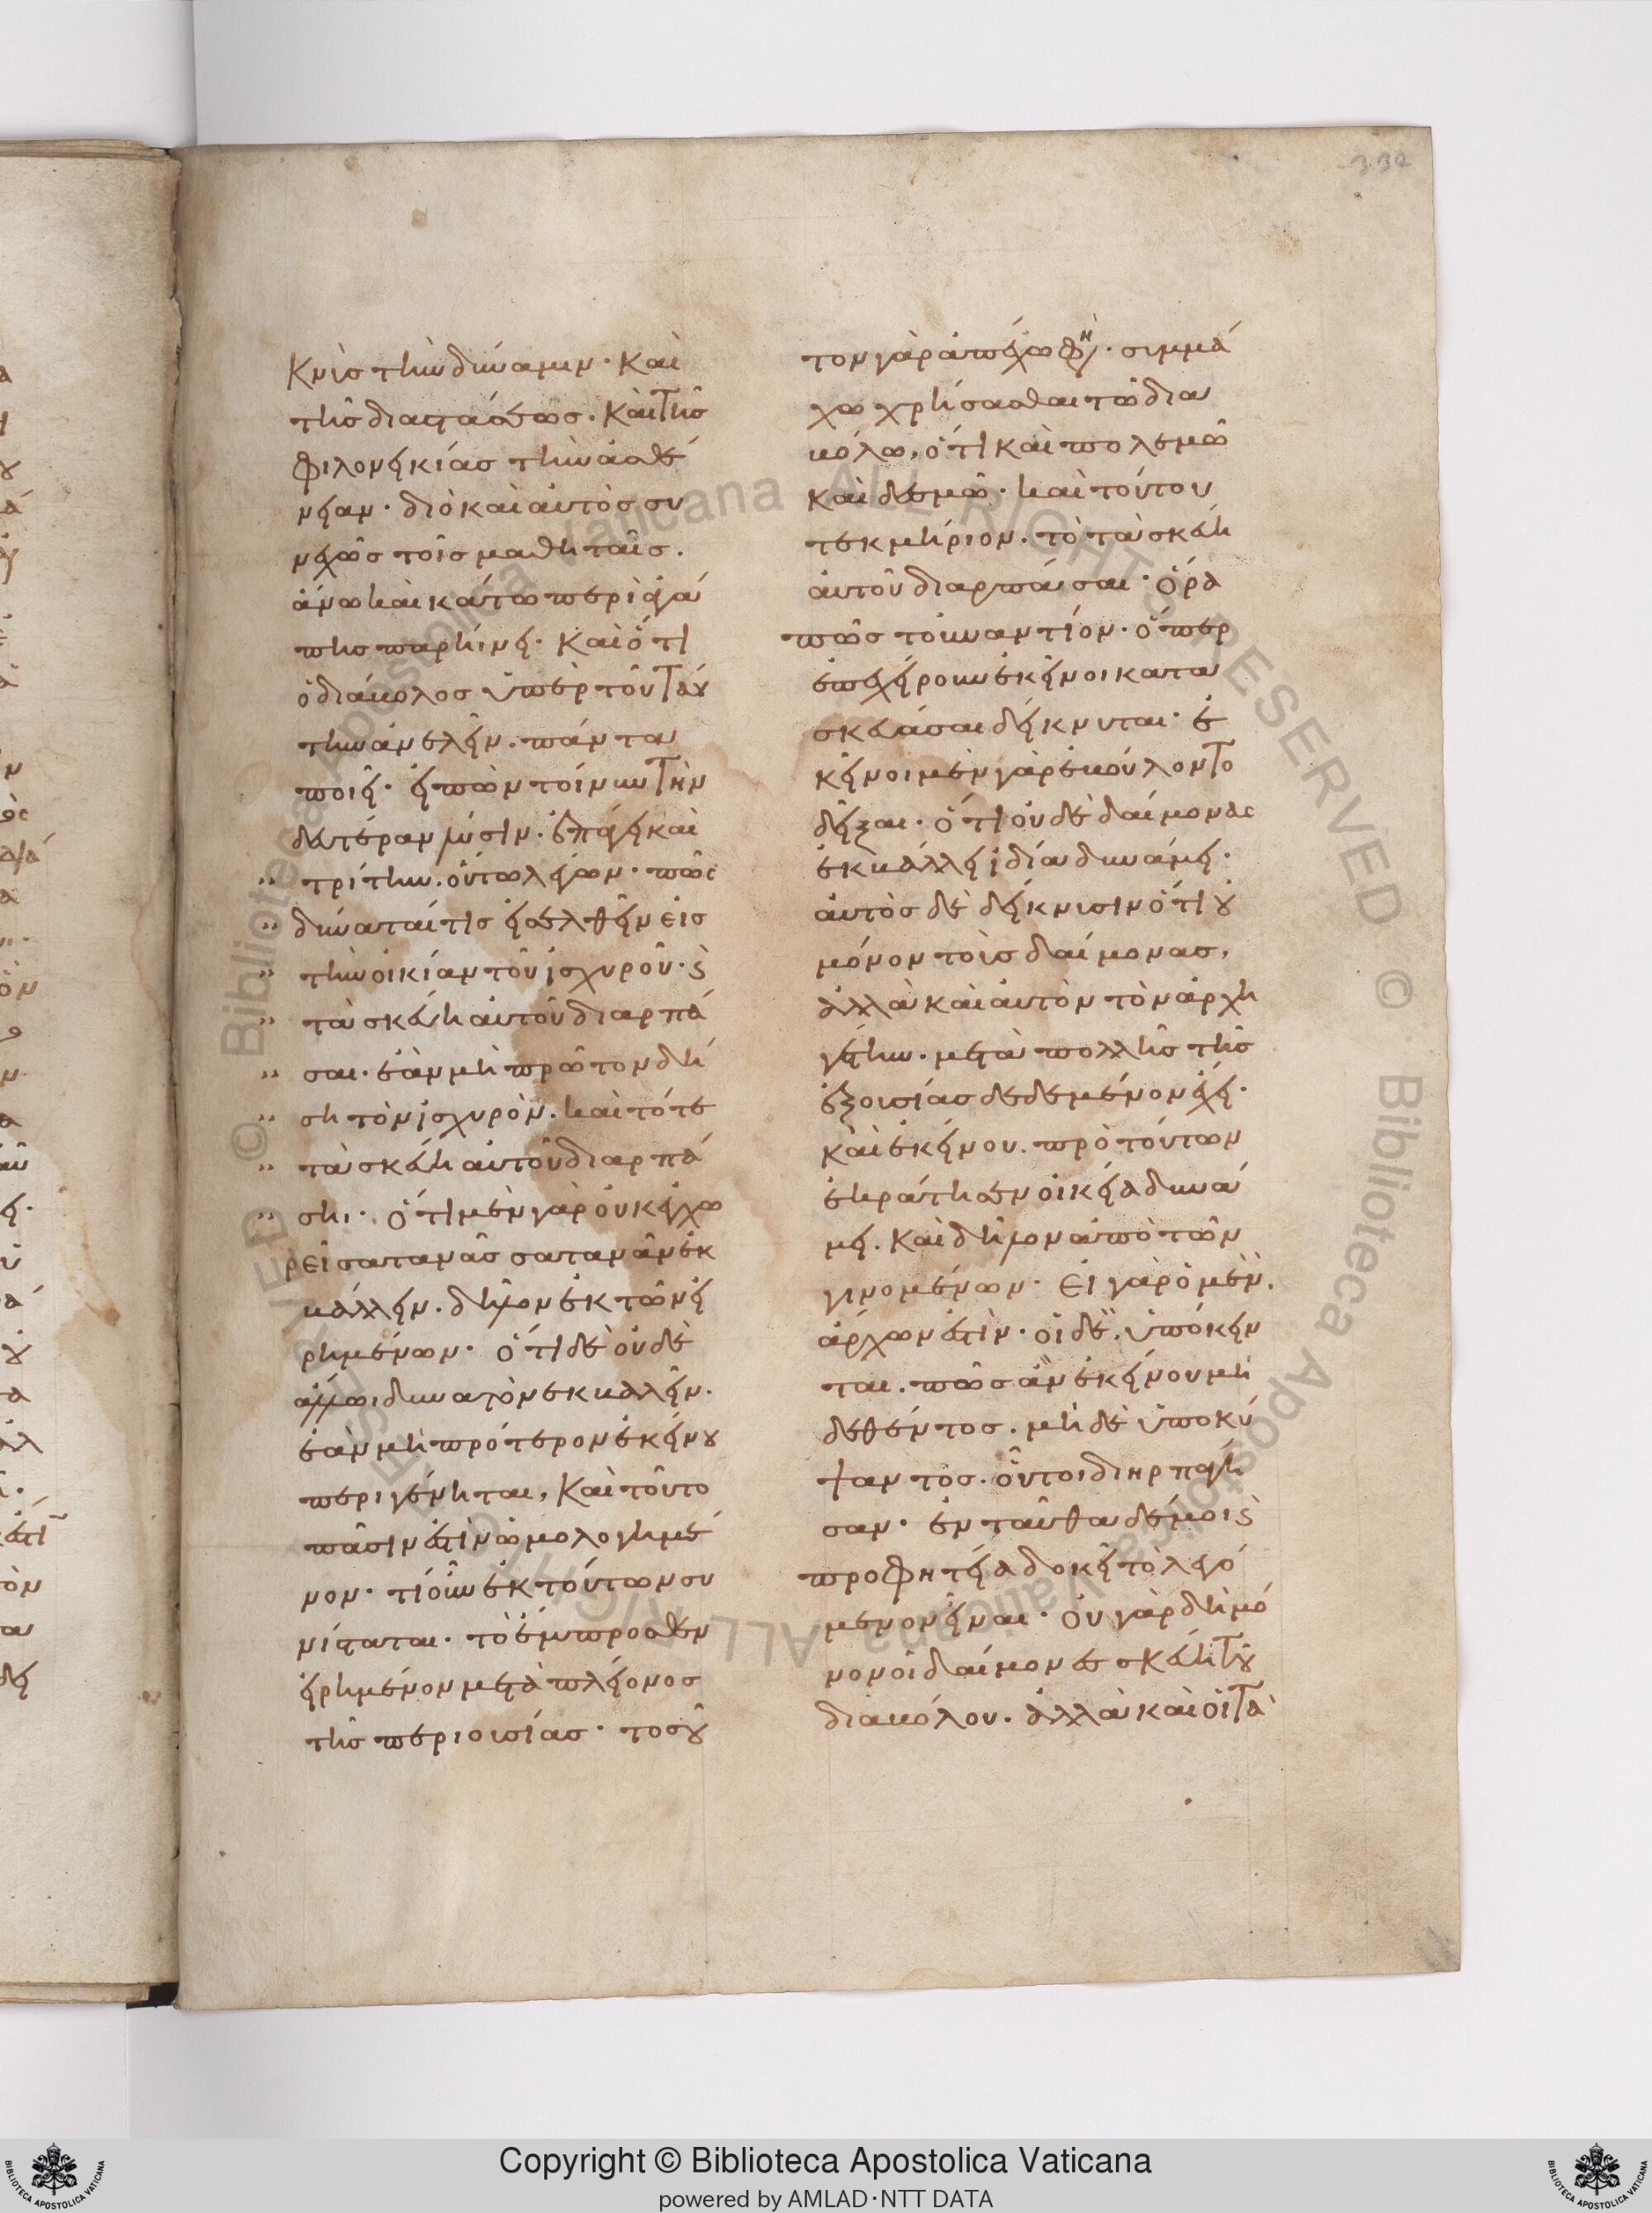 332
κνὺς τὴν δύναμιν· καὶ
τῆς διαστάσεως. καὶ τῆς
φιλονεικίας τὴν ἀσθέ
νειαν· διὸ καὶ αὐτὸς συ
νεχῶς τοῖς μαθηταῖς.
ἄνω καὶ κάτω περὶ ἀγά
πης παρήινει· καὶ ὅτι
ὁ διάβολος ὑπὲρ τοῦ ταύ
την ἀνελεῖν. πάντα
ποιεῖ· εἰπὼν τοίνυν τὴν
δευτέραν λύσιν. ἐπάγει καὶ
τρίτην. οὕτω λέγων· πῶς
δύναταί τις εἰσελθεῖν εἰς
τὴν οἰκίαν τοῦ ἰσχυροῦ· ϗ
τὰ σκεύη αὐτοῦ διαρπά
σαι· ἐὰν μὴ πρῶτον δή
ση τὸν ἰσχυρόν. καὶ τότε
τὰ σκεύη αὐτοῦ διαρπά
σηι· ὅτι μὲν γὰρ οὐκ ἐγχω
ρεῖ σατανᾶς σατανᾶν ἐκ
βάλλειν. δῆλον ἐκ τῶν εἰ
ρημένων· ὅτι δὲ οὐδὲ
ἄλλωι δυνατὸν ἐκβαλεῖν.
ἐὰν μὴ πρότερον ἐκείνου
περιγένηται, καὶ τοῦτο
πᾶσιν ἐστὶν ὡμολογημέ
νον· τί οὖν ἐκ τούτων συ
νίσταται· τὸ ἔμπροσθεν
εἰρημένον μετὰ πλείονος
τῆς περιουσίας· τοσοῦ
τον γὰρ ἀπέχω φη· συμμά
χω χρήσασθαι τῶ δια
βόλω, ὅτι καὶ πολεμῶ
καὶ δεσμῶ· καὶ τούτου
τεκμήριον. τὸ τὰ σκεύη
αὐτοῦ διαρπάσαι· ὅρα
πῶς τουναντίον· ὅπερ
ἐπεχείρουν ἐκεῖνοι κατα
σκευάσαι δείκνυται· ἐ
κεῖνοι μὲν γὰρ ἐβούλοντο
δεῖξαι· ὅτι οὐδὲ δαίμονας
ἐκβάλλει ἰδία δυνάμει·
αὐτὸς δὲ δείκνυσιν ὅτι οὐ
μόνον τοὺς δαίμονας,
ἀλλὰ καὶ αὐτὸν τὸν ἀρχη
γέτην. μετὰ πολλῆς τῆς
ἐξουσίας δεδεμένον ἔχει·
καὶ ἐκείνου. πρὸ τούτων
ἐκράτησεν οἰκεία δυνά
μει. καὶ δῆλον ἀπὸ τῶν
γινομένων· εἰ γὰρ ὁ μὲν.
ἄρχων ἐστὶν· οἱ δὲ. ὑπόκειν
ται. πῶς ἂν ἐκείνου μὴ
δεθέντος. μὴ δὲ ὑποκύ
ψαντος. οὗτοι διηρπάγη
σαν· ἐνταῦθα δέ μοι ϗ
προφητεία δοκεῖ τὸ λεγό
μενον εἶναι· οὐ γὰρ δὴ μό
νον οἱ δαίμονες σκεύη τοῦ
διαβόλου. ἀλλὰ καὶ οἱ τὰ
© Biblioteca Apostolica Vaticana ALL RIGHTS RESERVED
Copyright © Biblioteca Apostolica Vaticana
powered by AMLAD·NTT DATA
BIBLIOTECA APOSTOLICA VATICANA
BIBLIOTECA APOSTOLICA VATICANA